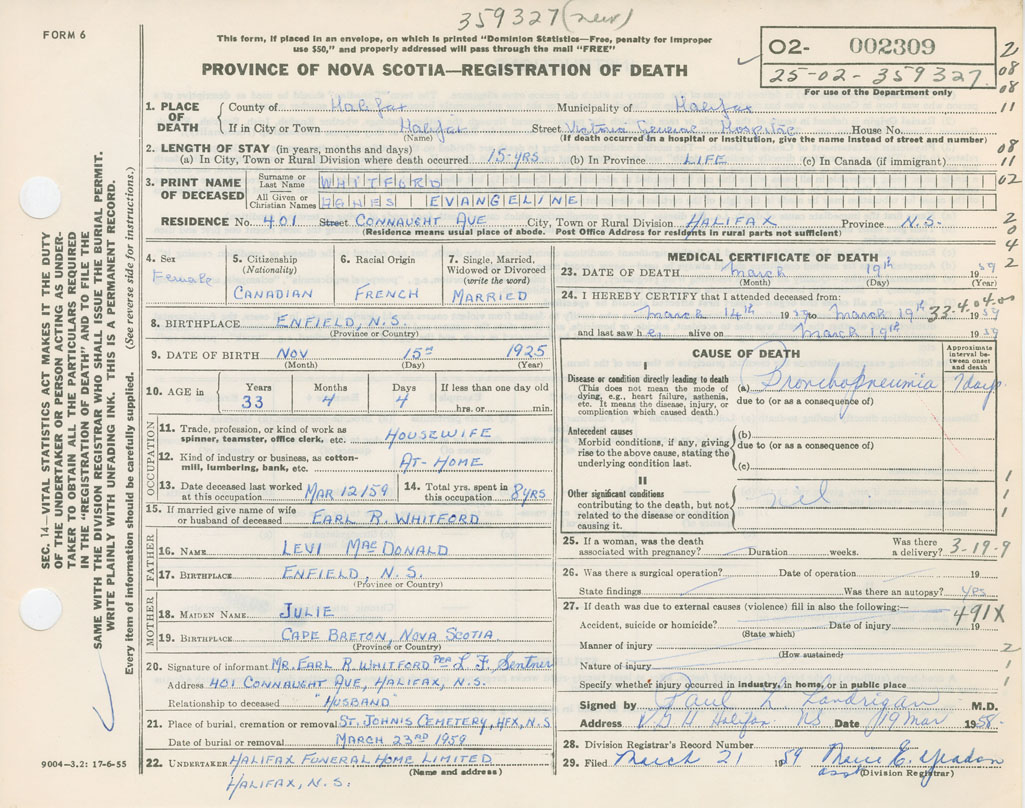 359327 (new)
FORM 6
This form, if placed in an envelope, on which is printed "Dominion Statistics—Free, penalty for improper
use $50," and properly addressed will pass through the mail "FREE"
PROVINCE OF NOVA SCOTIA—REGISTRATION OF DEATH
02- 002309
25-02-359327
For use of the Department only
2
08
08
11
08
11
02
2
0
4
2
SEC. 14—VITAL STATISTICS ACT MAKES IT THE DUTY
OF THE UNDERTAKER OR PERSON ACTING AS UNDER-
TAKER TO OBTAIN ALL THE PARTICULARS REQUIRED
IN THE "REGISTRATION OF DEATH" AND TO FILE THE
SAME WITH THE DIVISION REGISTRAR WHO SHALL ISSUE THE BURIAL PERMIT.
WRITE PLAINLY WITH UNFADING INK. THIS IS A PERMANENT RECORD.
Every item of information should be carefully supplied. (See reverse side for instructions.)
1. PLACE OF DEATH County of Halifax Municipality of Halifax
If in City or Town Halifax Street Victoria General Hospital House No.
(Name) (If death occurred in a hospital or institution, give the name instead of street and number)
2. LENGTH OF STAY (in years, months and days)
(a) In City, Town or Rural Division where death occurred 15-YRS (b) In Province LIFE (c) In Canada (if immigrant)
3. PRINT NAME OF DECEASED Surname or Last Name WHITFORD
All Given or Christian Names AGNES EVANGELINE
RESIDENCE No. 401 Street CONNAUGHT AVE City, Town or Rural Division HALIFAX Province N.S.
(Residence means usual place of abode. Post Office Address for residents in rural parts not sufficient)
4. Sex Female
5. Citizenship (Nationality) CANADIAN
6. Racial Origin FRENCH
7. Single, Married, Widowed or Divorced (write the word) MARRIED
8. BIRTHPLACE ENFIELD, N.S.
(Province or Country)
9. DATE OF BIRTH NOV 15TH 1925
(Month) (Day) (Year)
10. AGE in Years Months Days If less than one day old
33 4 4 hrs. or min.
OCCUPATION
11. Trade, profession, or kind of work as spinner, teamster, office clerk, etc. HOUSEWIFE
12. Kind of industry or business, as cotton-mill, lumbering, bank, etc. AT-HOME
13. Date deceased last worked at this occupation MAR 12/59 14. Total yrs. spent in this occupation 8 YRS
15. If married give name of wife or husband of deceased EARL R. WHITFORD
FATHER
16. NAME LEVI MACDONALD
17. BIRTHPLACE ENFIELD, N.S.
(Province or Country)
MOTHER
18. MAIDEN NAME JULIE
19. BIRTHPLACE CAPE BRETON, NOVA SCOTIA
(Province or Country)
20. Signature of informant MR. EARL R. WHITFORD PER L F Sentner
Address 401 CONNAUGHT AVE, HALIFAX, N.S.
Relationship to deceased "HUSBAND"
21. Place of burial, cremation or removal ST. JOHNS CEMETERY, HFX, N.S.
Date of burial or removal MARCH 23RD 1959
22. UNDERTAKER HALIFAX FUNERAL HOME LIMITED
(Name and address)
HALIFAX, N.S.
9004-3.2: 17-6-55
MEDICAL CERTIFICATE OF DEATH
23. DATE OF DEATH March 19th 1959
(Month) (Day) (Year)
24. I HEREBY CERTIFY that I attended deceased from:
March 14th 1959 to March 19th 1959
33-4 04-00
and last saw her alive on March 19th 1959
CAUSE OF DEATH
Approximate interval between onset and death
I
Disease or condition directly leading to death (a) Bronchopneumia 7 days
(This does not mean the mode of dying, e.g., heart failure, asthenia, etc. It means the disease, injury, or complication which caused death.)
due to (or as a consequence of)
Antecedent causes (b)
Morbid conditions, if any, giving rise to the above cause, stating the underlying condition last.
due to (or as a consequence of)
(c)
II
Other significant conditions contributing to the death, but not related to the disease or condition causing it.
1
1
1
25. If a woman, was the death associated with pregnancy? Duration weeks. Was there a delivery? 3-19-9
26. Was there a surgical operation? Date of operation 19
State findings Was there an autopsy? yes
27. If death was due to external causes (violence) fill in also the following:—
491X
Accident, suicide or homicide? Date of injury 19
(State which)
Manner of injury 2
(How sustained)
Nature of injury 1
Specify whether injury occurred in industry, in home, or in public place 1
Signed by Paul L Landrigan M.D.
Address V G H Halifax NS Date 19 Mar 1958
28. Division Registrar's Record Number
29. Filed March 21 1959 Marie E. Yeadon
asst (Division Registrar)